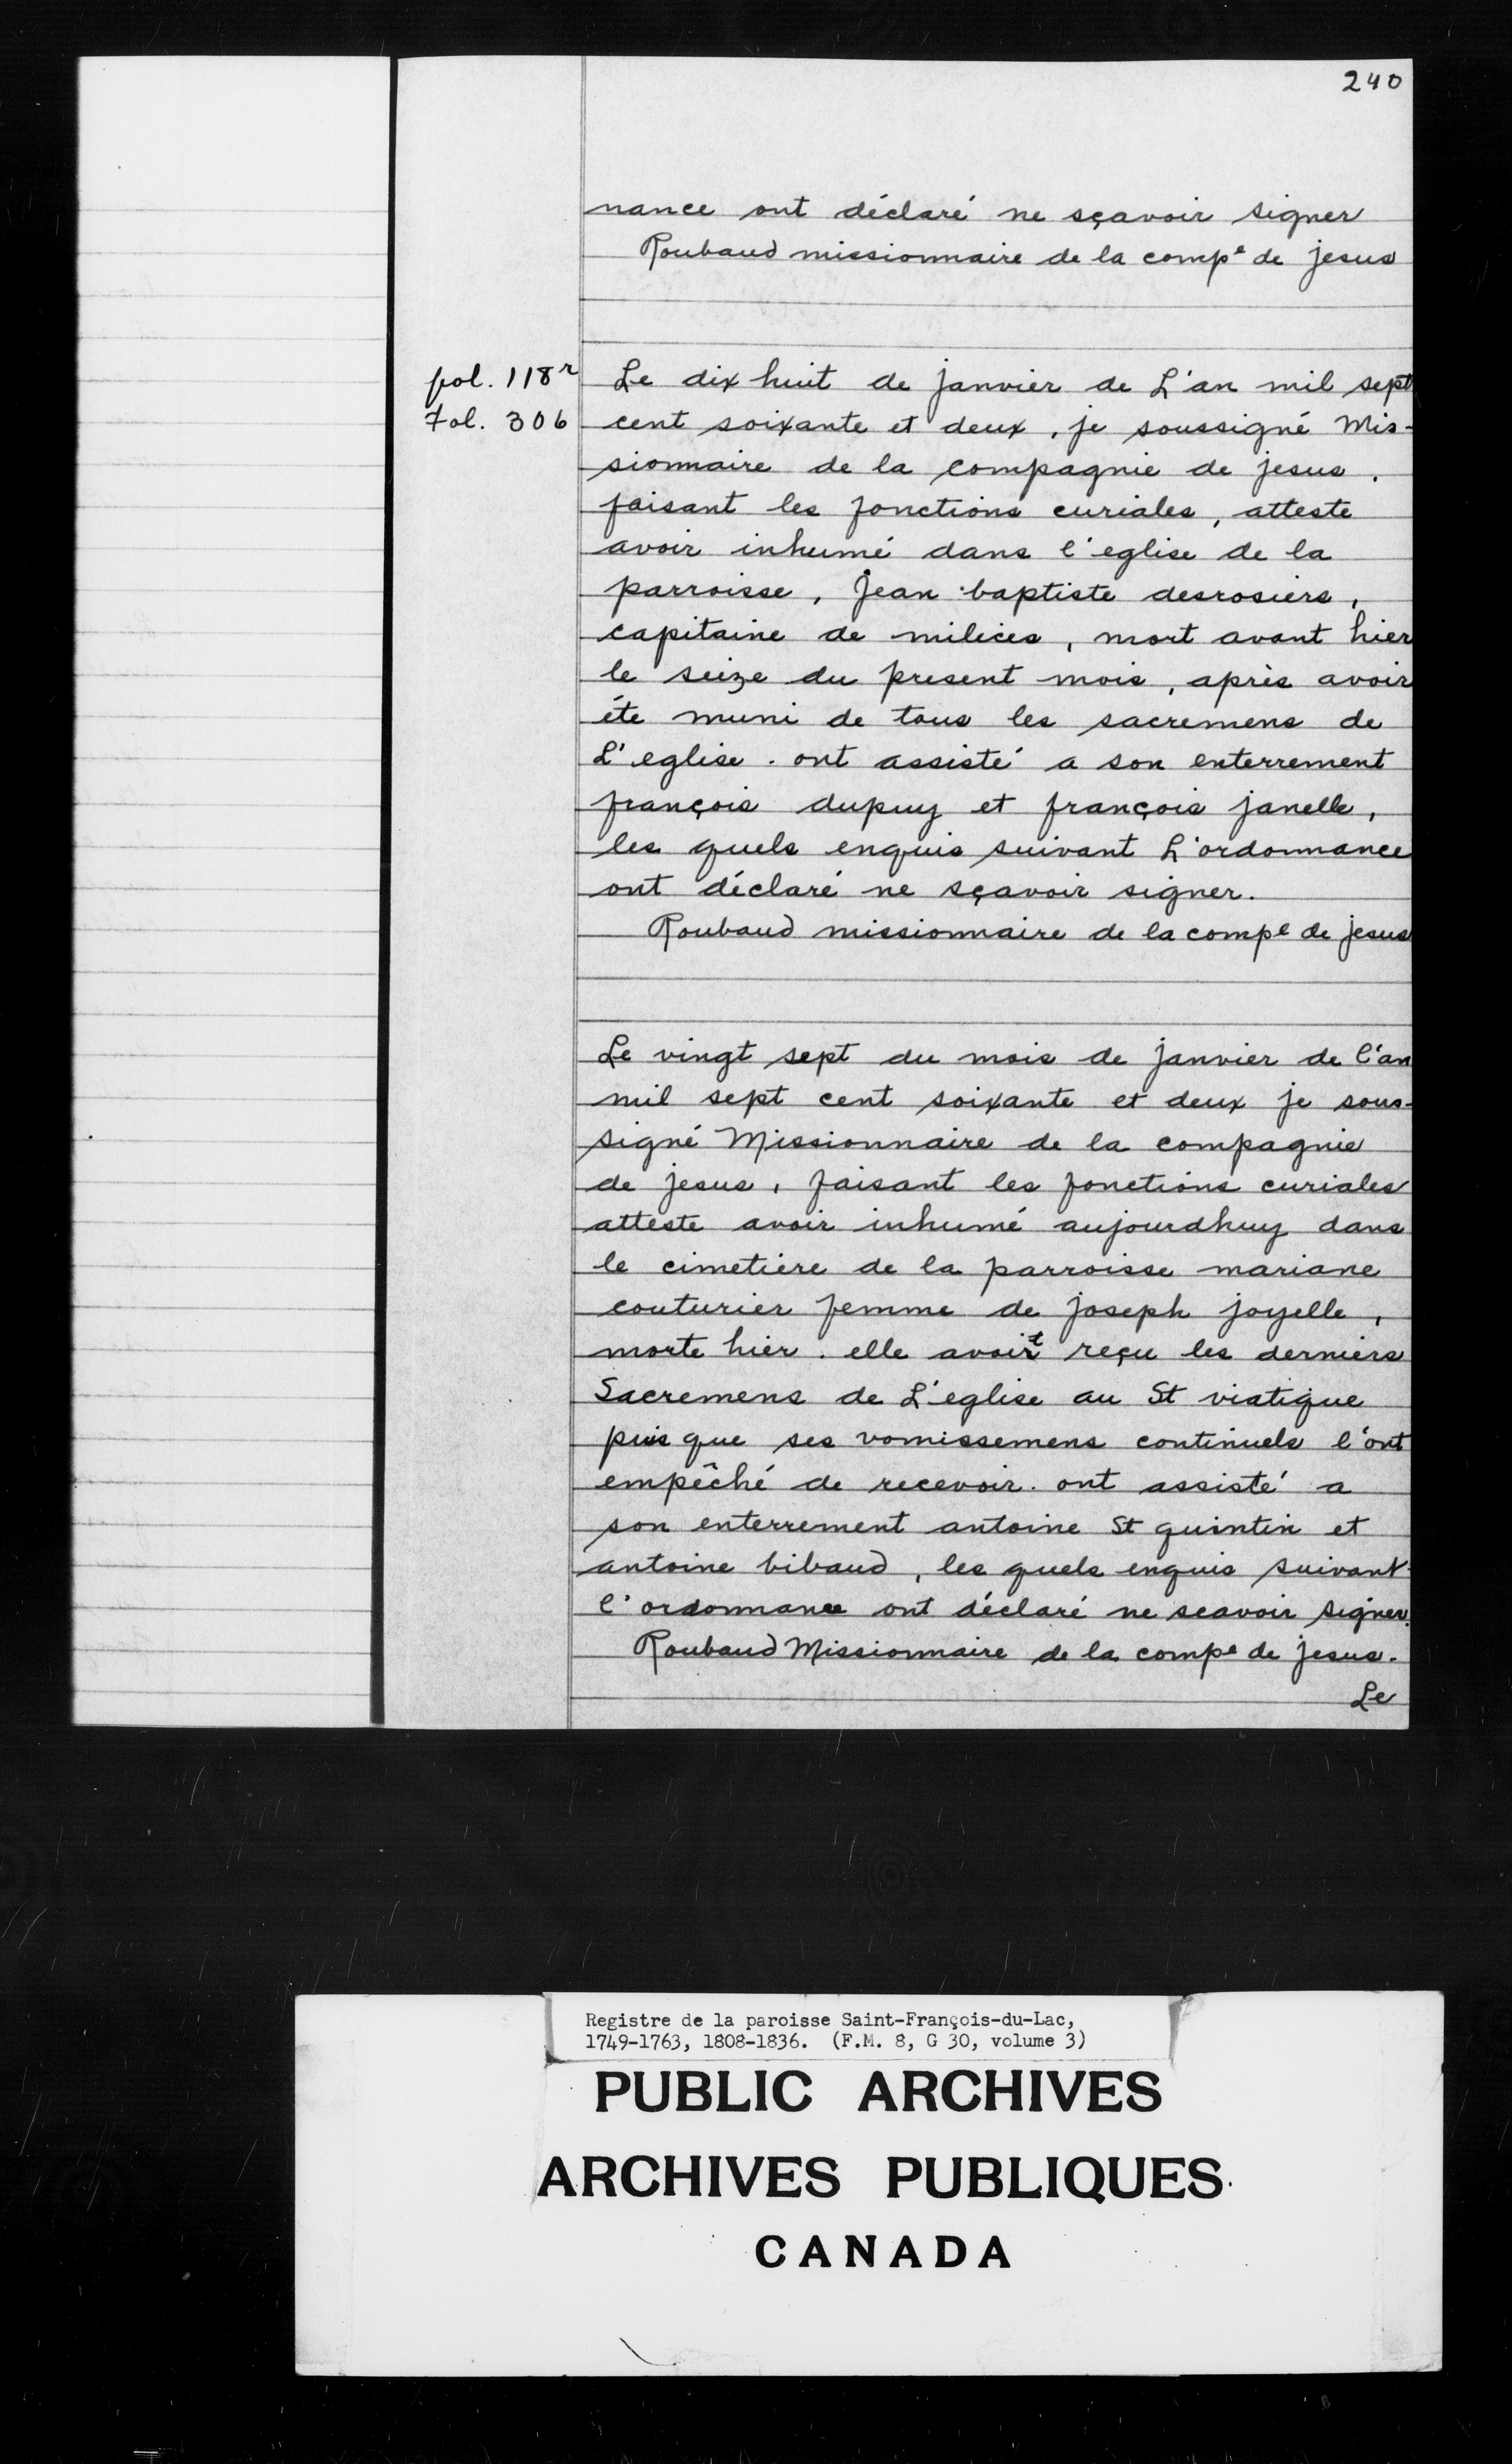 240
nance ont déclaré ne sçavoir signer
Roubaud missionnaire de la compe de jesus
fol. 118r
Fol. 306
Le dix huit de janvier de L'an mil sept
cent soixante et deux, je soussigné Mis-
sionnaire de la compagnie de jesus.
faisant les fonctions curiales, atteste
avoir inhumé dans l'eglise de la
parroisse, Jean baptiste desrosiers,
capitaine de milices, mort avant hier
le seize du present mois, après avoir
éte muni de tous les sacremens de
L'eglise. ont assisté a son enterrement
françois dupuy et françois janelle,
les quels enquis suivant L'ordonnance
ont déclaré ne sçavoir signer.
Roubaud missionnaire de la compe de jesus
Le vingt sept du mois de janvier de l'an
mil sept cent soixante et deux je sous-
signé Missionnaire de la compagnie
de jesus, faisant les fonctions curiales
atteste avoir inhumé aujourdhuy dans
le cimetiere de la parroisse mariane
couturier femme de joseph joyelle,
morte hier. elle avoit reçu les derniers
Sacremens de L'eglise au St viatique
puis que ses vomissemens continuels l'ont
empêché de recevoir. ont assisté a
son enterrement antoine St quintin et
antoine bibaud, les quels enquis suivant
l'ordonnance ont déclaré ne scavoir signer.
Roubaud Missionnaire de la compe de jesus.
Le
Registre de la paroisse Saint-François-du-Lac,
1749-1763, 1808-1836. (F.M. 8, G 30, volume 3)
PUBLIC ARCHIVES
ARCHIVES PUBLIQUES
CANADA